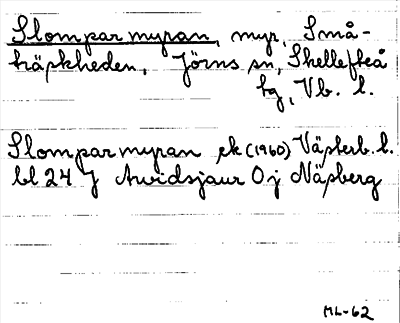 Slomparmyran, myr, Små-
träskheden, Jörns sn, Skellefteå
tg, Vb. l.
Slomparmyran ek (1960) Västerb. l.
bl 24 J Arvidsjaur 0 j Näsberg
ML-62